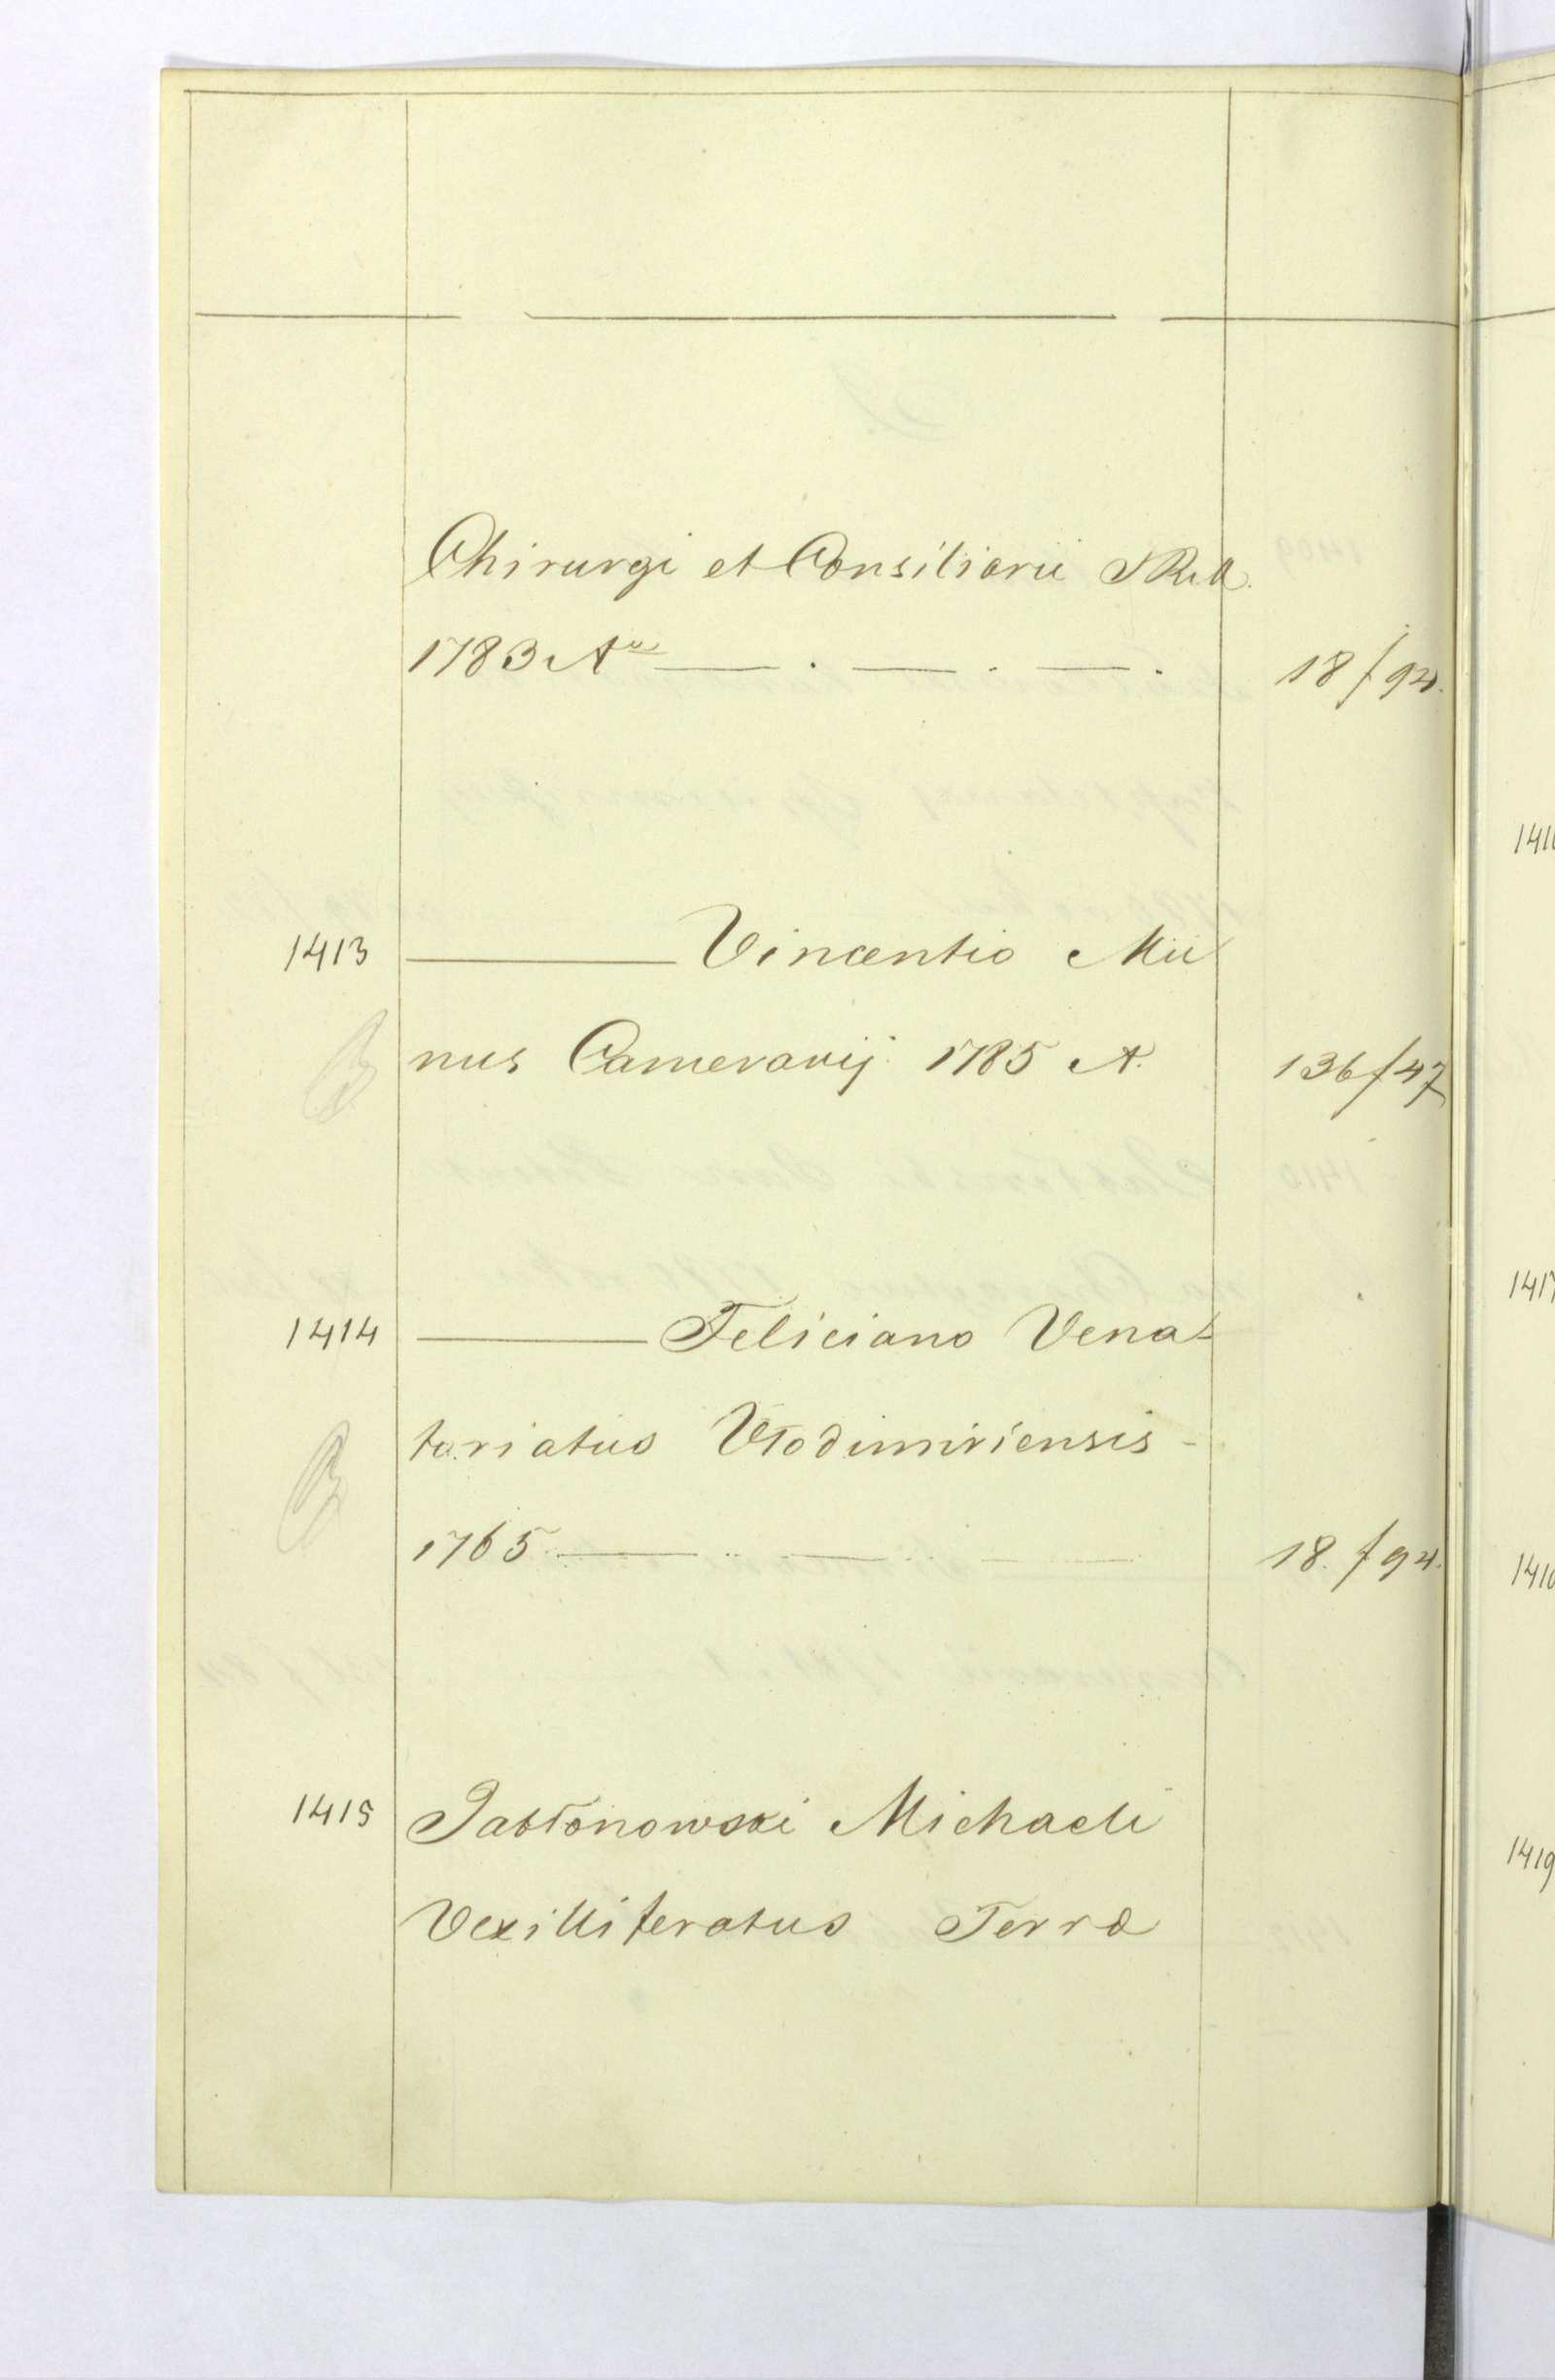 Chirurgi et Consiliarii SRM.
1783 A° — . — . — . 18/94.
1413 ——— Vincentio Mu
nus Camerarij 1785 A. 136/47
1414 ——— Feliciano Vena-
toriatus Włodimiriensis -
1765 — .. — .. — 18./94.
1415 Jabłonowski Michaeli
Vexilliferatus Terrae
1417
1419